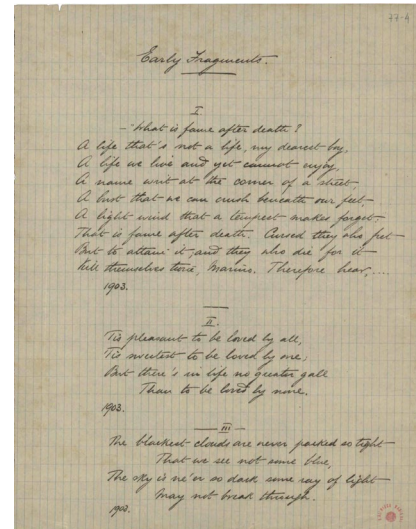 77-4
Early Fragments.
I.
– What is fame after death?
A life that's not a life, my dearest boy,
A life we live and yet cannot enjoy,
A name writ at the corner of a street,
A bust that we can crush beneath our feet –
A light wind that a tempest makes forgot –
That is fame after death. Cursed they who fret
But to attain it; and they who die for it
Kill themselves twice, Marino. Therefore hear, ...
1903.
II.
'Tis pleasant to be loved by all,
'Tis sweetest to be loved by one;
But there's in life no greater gall
Than to be loved by none.
1903.
III
The blackest clouds are never packed so tight
That we see not some blue,
The sky is ne'er so dark some ray of light
May not break through.
1903.